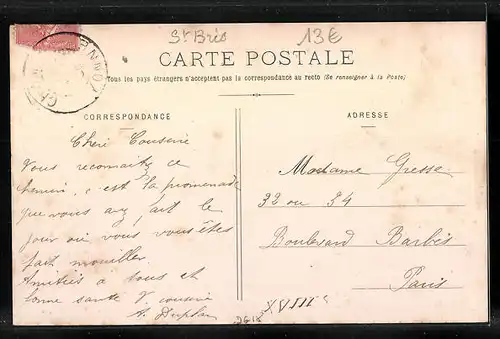 St Bris 13€
CARTE POSTALE
Tous les pays étrangers n'acceptent pas la correspondance au recto (Se renseigner à la Poste)
CORRESPONDANCE
ADRESSE
Cheri Cousine
Vous reconnaitz ce
chemin, c'est la promenade
que vous avz fait le
jour où vous vous êtes
fait mouiller.
Amitiés à tous et
bonne santé V. cousine
A.
Madame Gresse
32 ou 34
Boulevard Barbès
Paris
XVIIIe